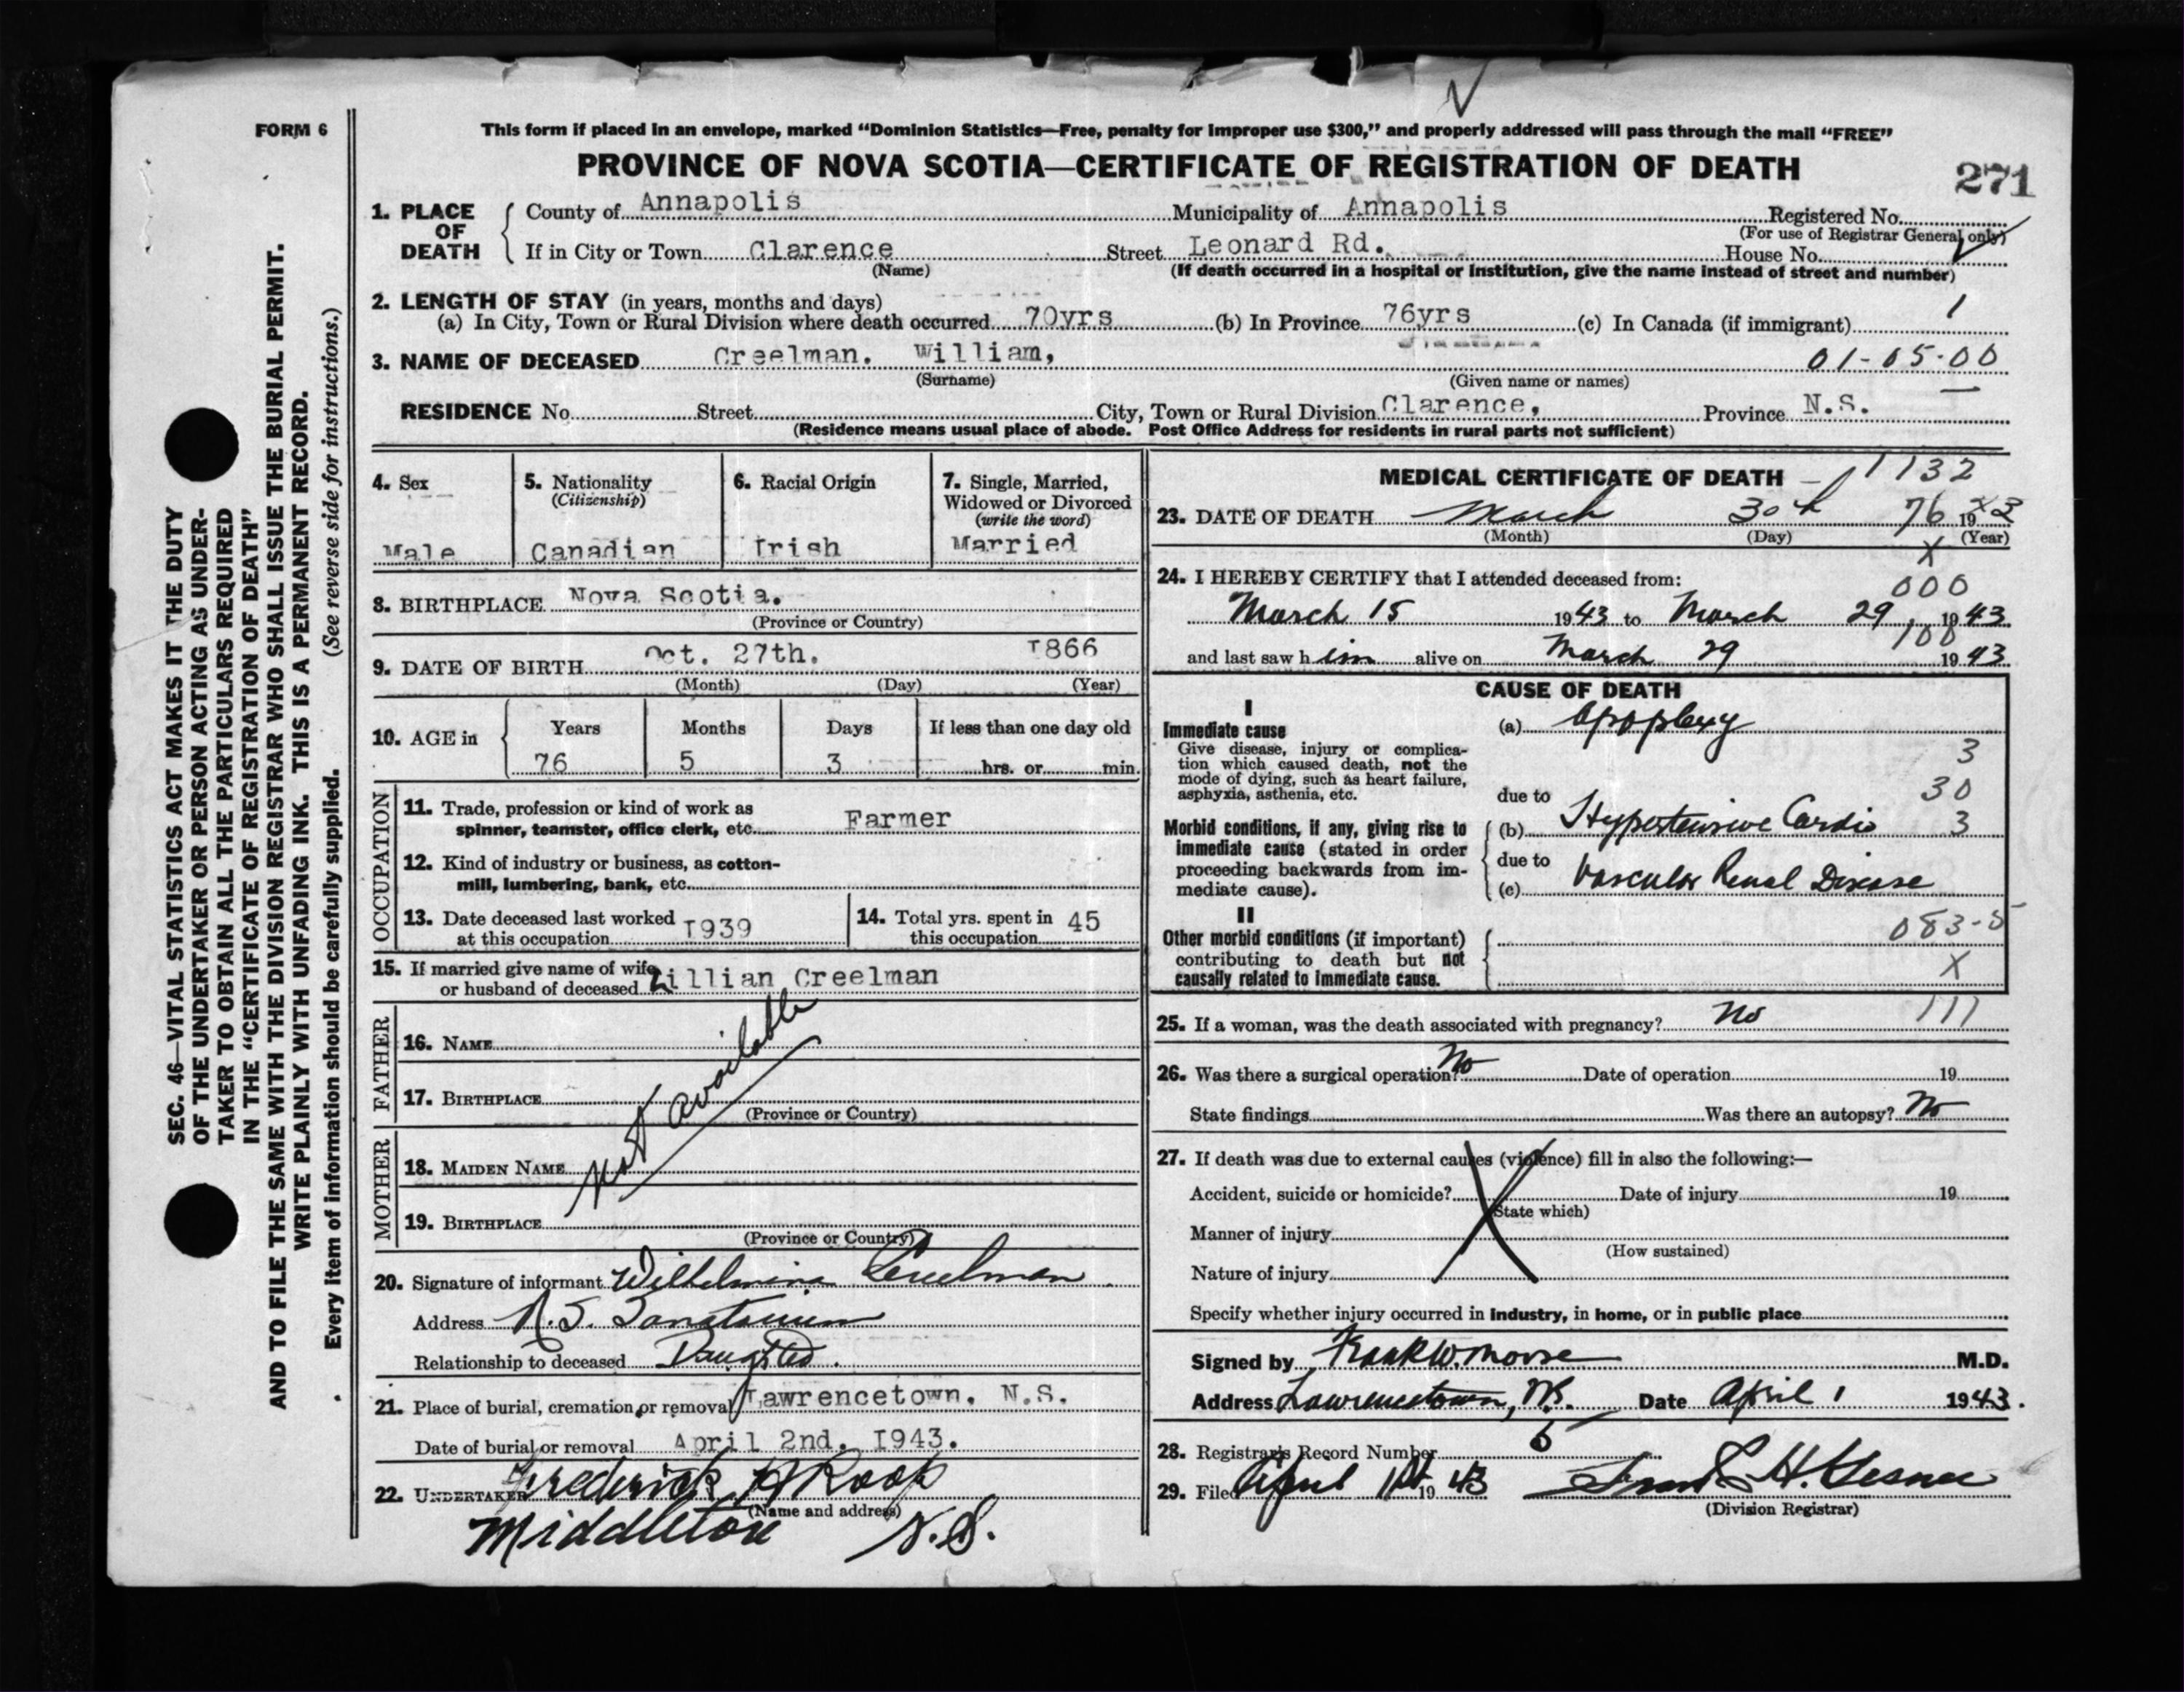 FORM 6
This form if placed in an envelope, marked “Dominion Statistics—Free, penalty for improper use $300,” and properly addressed will pass through the mail “FREE”
PROVINCE OF NOVA SCOTIA—CERTIFICATE OF REGISTRATION OF DEATH
271
1. PLACE OF DEATH
County of Annapolis Municipality of Annapolis Registered No.
(For use of Registrar General only)
If in City or Town Clarence Street Leonard Rd. House No.
(Name) (If death occurred in a hospital or institution, give the name instead of street and number)
2. LENGTH OF STAY (in years, months and days)
(a) In City, Town or Rural Division where death occurred 70yrs (b) In Province 76yrs (c) In Canada (if immigrant) 1
3. NAME OF DECEASED Creelman. William, 01-05-00
(Surname) (Given name or names)
RESIDENCE No. Street City, Town or Rural Division Clarence, Province N.S.
(Residence means usual place of abode. Post Office Address for residents in rural parts not sufficient)
4. Sex
Male
5. Nationality
(Citizenship)
Canadian
6. Racial Origin
Irish
7. Single, Married,
Widowed or Divorced
(write the word)
Married
8. BIRTHPLACE Nova Scotia.
(Province or Country)
9. DATE OF BIRTH Oct. 27th. 1866
(Month) (Day) (Year)
10. AGE in
Years Months Days If less than one day old
76 5 3 hrs. or min.
OCCUPATION
11. Trade, profession or kind of work as
spinner, teamster, office clerk, etc. Farmer
12. Kind of industry or business, as cotton-
mill, lumbering, bank, etc.
13. Date deceased last worked
at this occupation 1939
14. Total yrs. spent in
this occupation 45
15. If married give name of wife
or husband of deceased Lillian Creelman
FATHER
16. NAME
17. BIRTHPLACE
(Province or Country)
Not available
MOTHER
18. MAIDEN NAME
19. BIRTHPLACE
(Province or Country)
20. Signature of informant Wilhelmina Creelman
Address N.S. Sanatorium
Relationship to deceased Daughter.
21. Place of burial, cremation or removal Lawrencetown. N.S.
Date of burial or removal April 2nd. 1943.
22. UNDERTAKER Frederick H Roop
(Name and address)
Middleton N.S.
MEDICAL CERTIFICATE OF DEATH 1132
23. DATE OF DEATH March 30th 76 1943
(Month) (Day) (Year)
X
24. I HEREBY CERTIFY that I attended deceased from:
000
March 15 1943 to March 29, 1943
100
and last saw him alive on March 29 1943
CAUSE OF DEATH
I
Immediate cause
Give disease, injury or complica-
tion which caused death, not the
mode of dying, such as heart failure,
asphyxia, asthenia, etc.
(a) Apoplexy
3
30
due to
Morbid conditions, if any, giving rise to
immediate cause (stated in order
proceeding backwards from im-
mediate cause).
(b) Hypertensive Cardio 3
due to
(c) Vascular Renal Disease
II
Other morbid conditions (if important)
contributing to death but not
causally related to immediate cause.
083-5
X
25. If a woman, was the death associated with pregnancy? No 111
26. Was there a surgical operation? No Date of operation 19
State findings Was there an autopsy? No
27. If death was due to external causes (violence) fill in also the following:—
Accident, suicide or homicide? Date of injury 19
(State which)
Manner of injury
(How sustained)
Nature of injury
Specify whether injury occurred in industry, in home, or in public place
Signed by Frank W. Morse M.D.
Address Lawrencetown, N.S. Date April 1 1943.
28. Registrar's Record Number 5
29. Filed April 1st 1943 H. Gesner
(Division Registrar)
SEC. 46—VITAL STATISTICS ACT MAKES IT THE DUTY
OF THE UNDERTAKER OR PERSON ACTING AS UNDER-
TAKER TO OBTAIN ALL THE PARTICULARS REQUIRED
IN THE “CERTIFICATE OF REGISTRATION OF DEATH”
AND TO FILE THE SAME WITH THE DIVISION REGISTRAR WHO SHALL ISSUE THE BURIAL PERMIT.
WRITE PLAINLY WITH UNFADING INK. THIS IS A PERMANENT RECORD.
Every item of information should be carefully supplied. (See reverse side for instructions.)